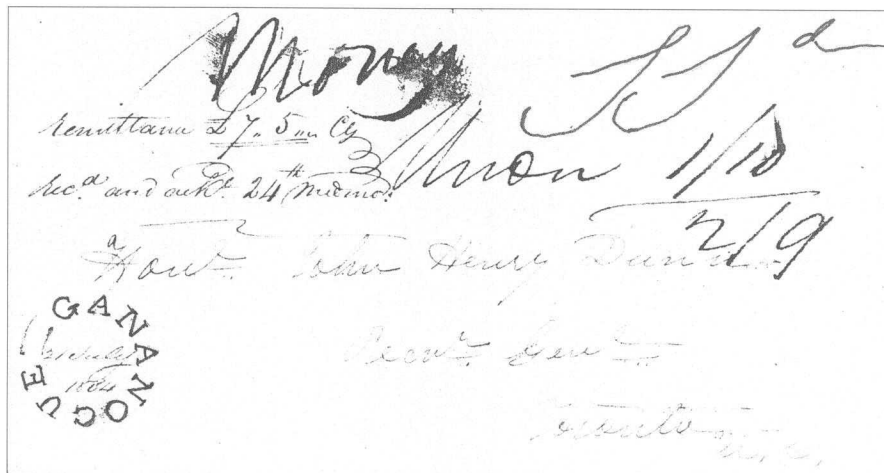 Money
remittance £7. 5 Cy
rec.d and ack.d 24th
Union
1/10
2/9
Honbl John Henry Dunn
Recvr. Genl
Toronto
U.C.
GANANOQUE